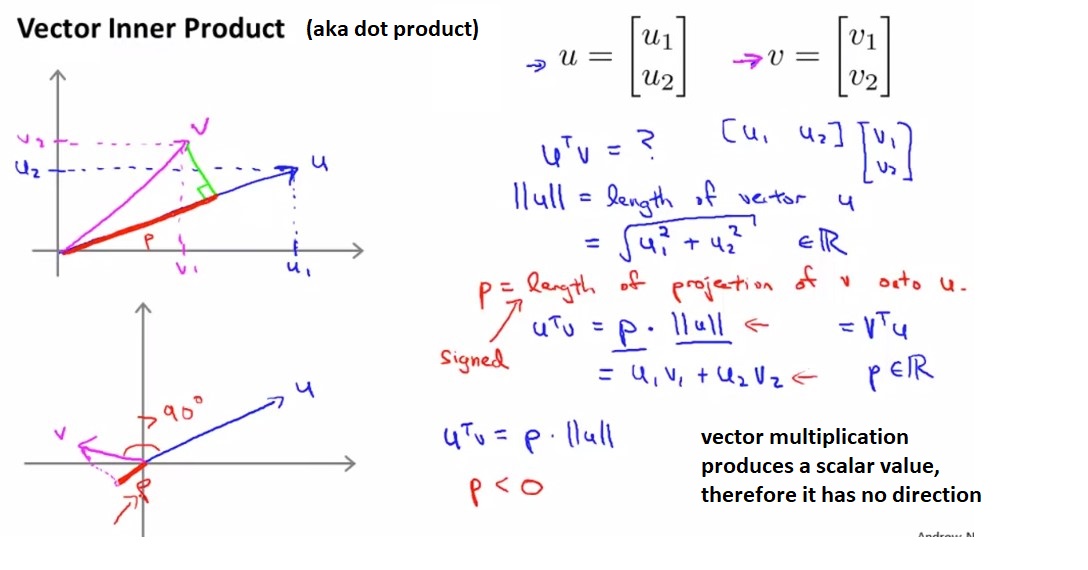 Vector Inner Product (aka dot product)
⇒ u = [u1 u2] → v = [v1 v2]
uᵀv = ? [u₁ u₂] [v₁ v₂]
||u|| = length of vector u
= √(u₁² + u₂²) ∈ ℝ
p = length of projection of v onto u.
Signed
uᵀv = p · ||u|| ← = vᵀu
= u₁v₁ + u₂v₂ ← p ∈ ℝ
uᵀv = p · ||u||
p < 0
v₂
u₂
v
u
p
v₁
u₁
> 90°
u
v
p
vector multiplication
produces a scalar value,
therefore it has no direction
Andrew N